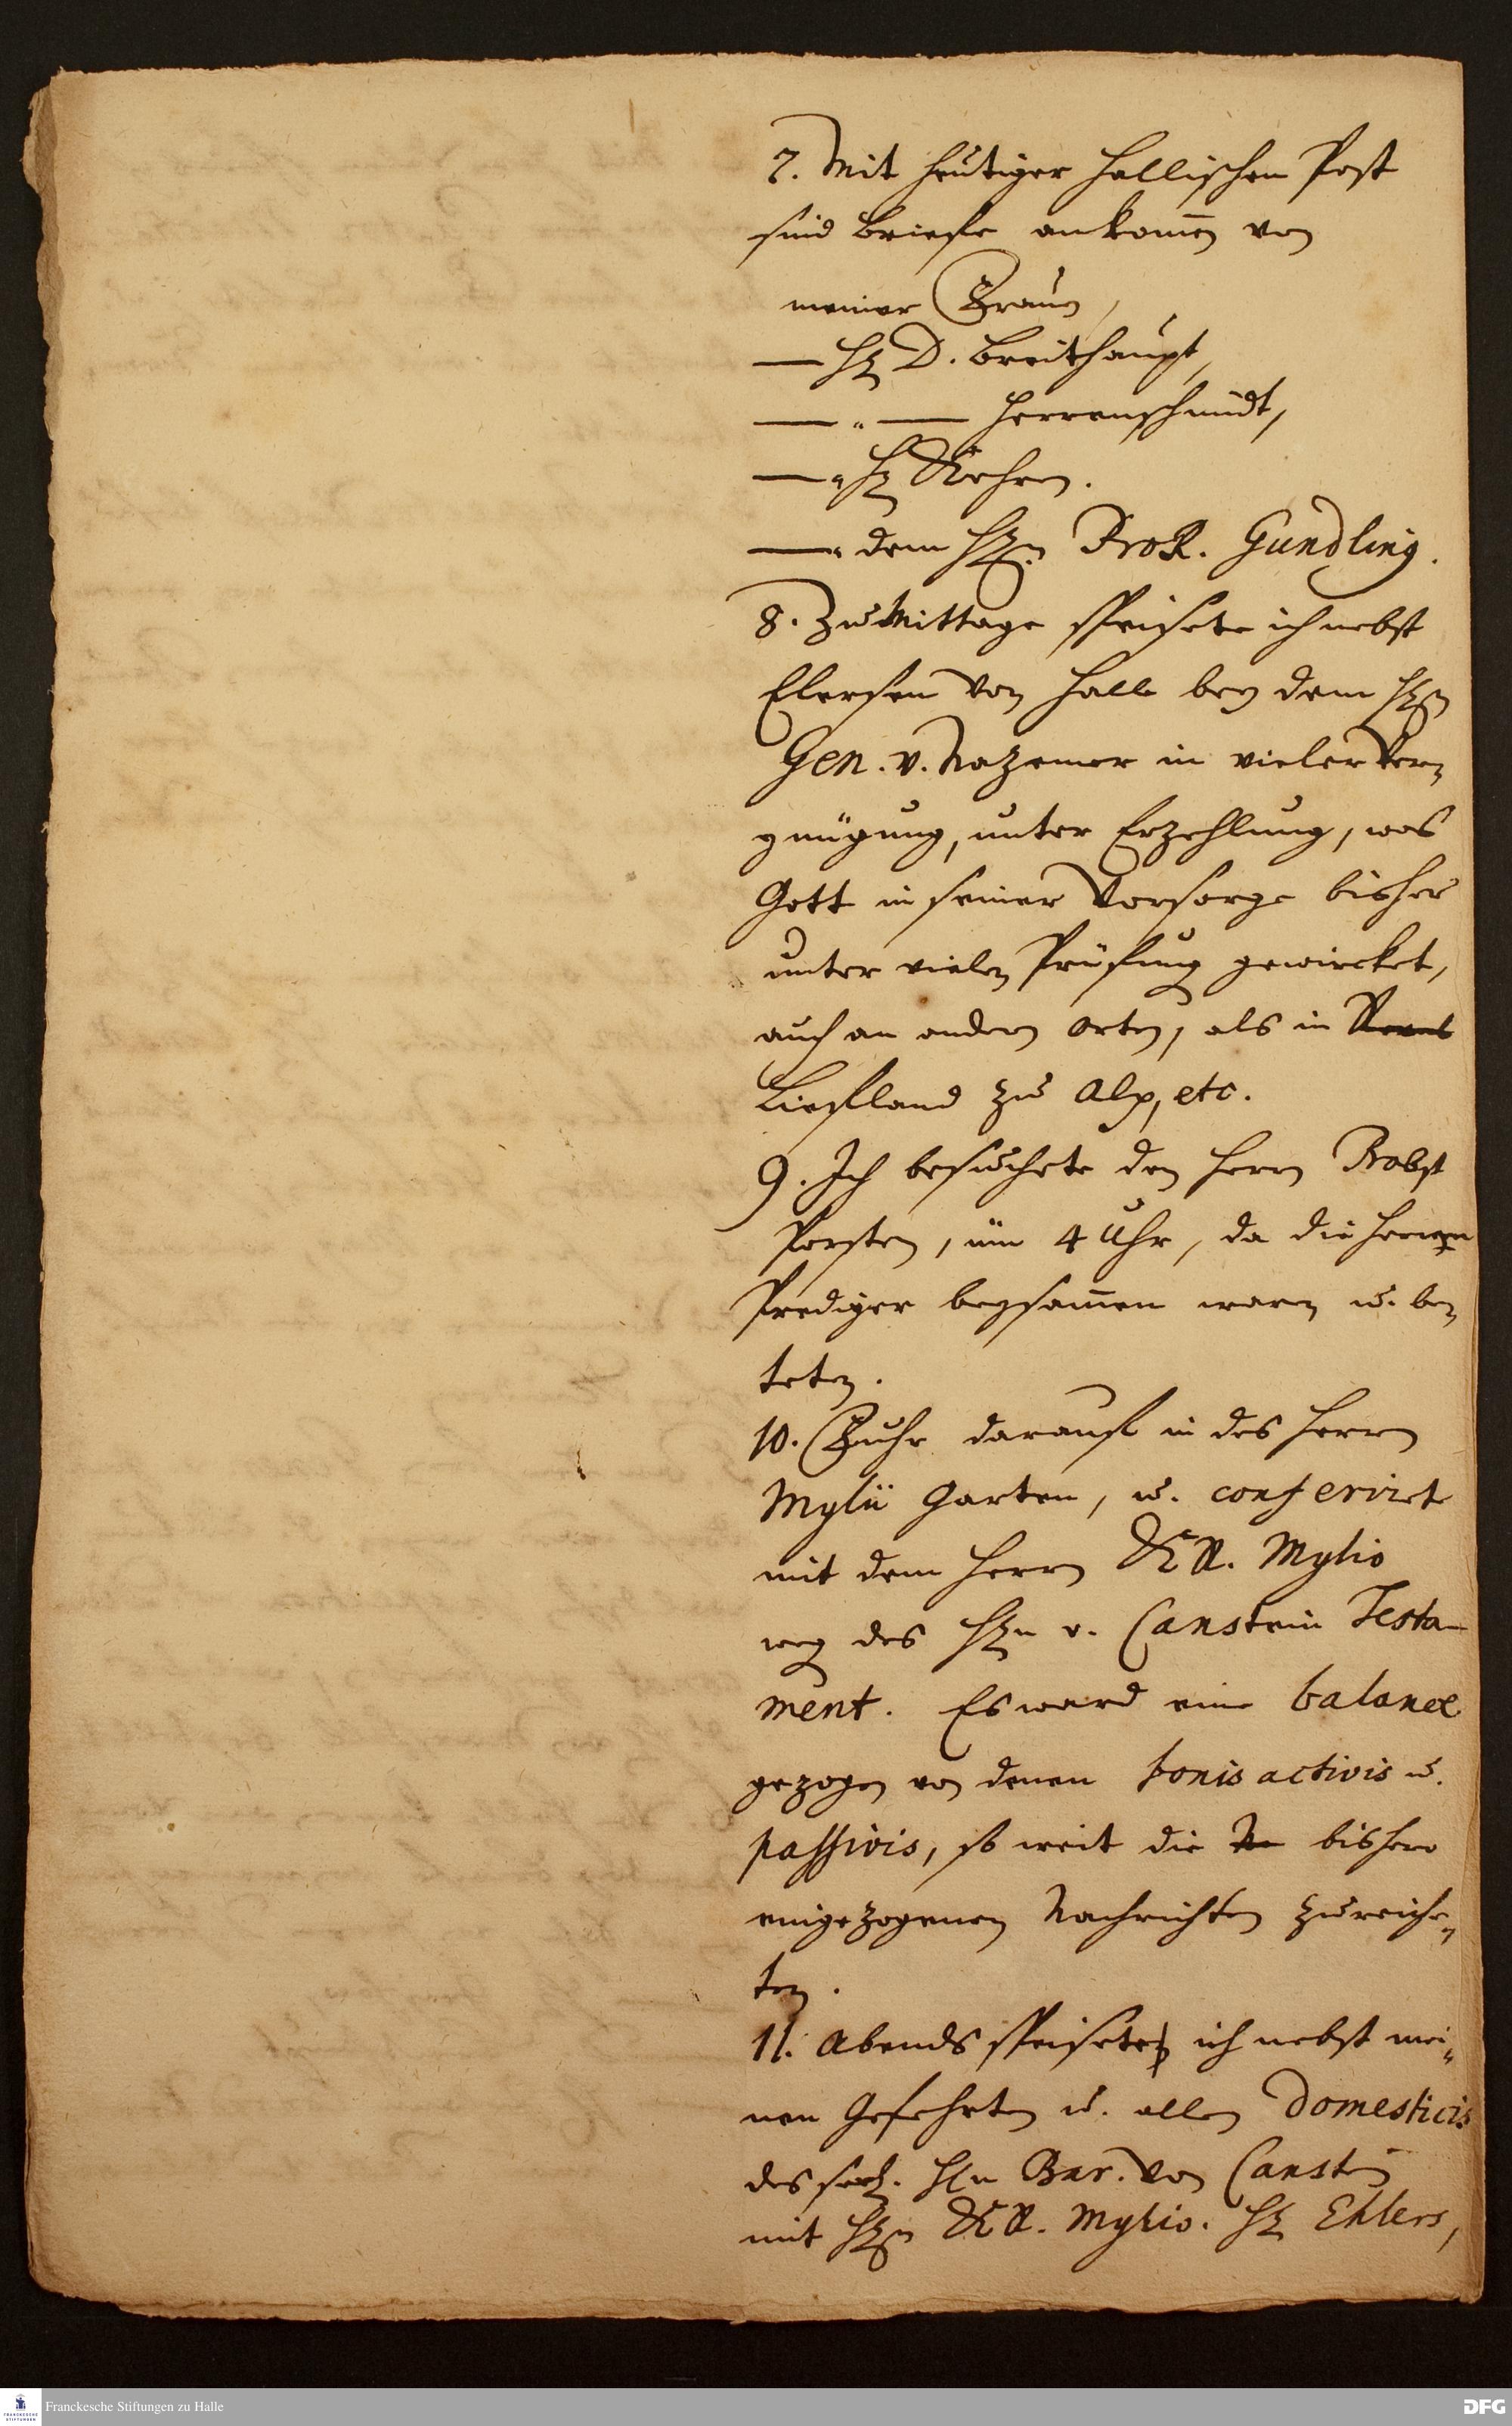 7. Mit heutiger Hallischen Post
sind Briefe ankom̅en von
meiner Frauen,
— H. D. Breithaupt,
— " — Herrenschmidt,
— " H. Köhren.
— " dem H.n Prof. Gundling.
8. Zu Mittage speisete ich nebst
Elersen von Halle bey dem H.n
Gen. v. Nazemer in vieler Ver-
gnügung, unter Erzehlung, was
Gott in seiner Vorsorge bisher
unter vielen Prüfung gewircket,
auch an andern Orten, als in
Liefland zu Alp, etc.
9. Ich besuchete den Herrn Probst
Porsten, üm 4 Uhr, da die Herren
Prediger beysam̅en waren u. be-
teten.
10. Fuhr darauf in des Herrn
Mylii Garten, u. conferirte
mit dem Herrn KR. Mylio
weg des H.n v. Canstein Testa-
ment. Es ward eine balance
gezogen von denen bonis activis u.
passivis, so weit die bishero
eingezogenen Nachrichten zureiche-
ten.
11. Abends speisete ich nebst mei-
nen Gefehrten u. allen Domesticis
des seel. H.n Bar. von Canstein
mit H.n KR. Mylio. H. Ehlers,
Franckesche Stiftungen zu Halle
DFG